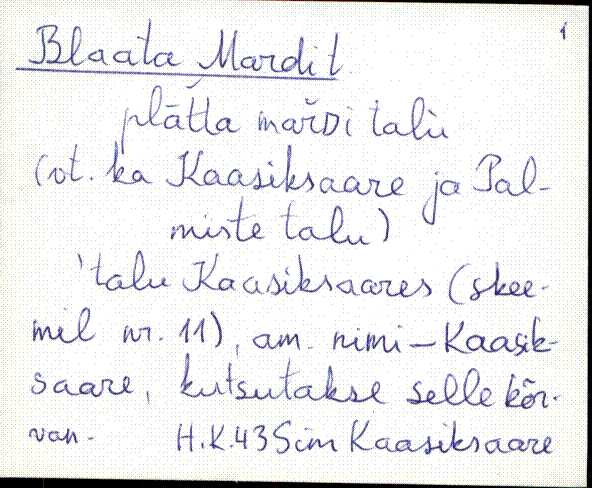 1
Blaata Mardi t.
plātta mar̆Di talu
(vt. ka Kaasiksaare ja Pal-
miste talu)
'talu Kaasiksaares (skee-
mil nr. 11), am. nimi – Kaasik-
saare, kutsutakse selle kõr-
van- H.K.43 Sim Kaasiksaare